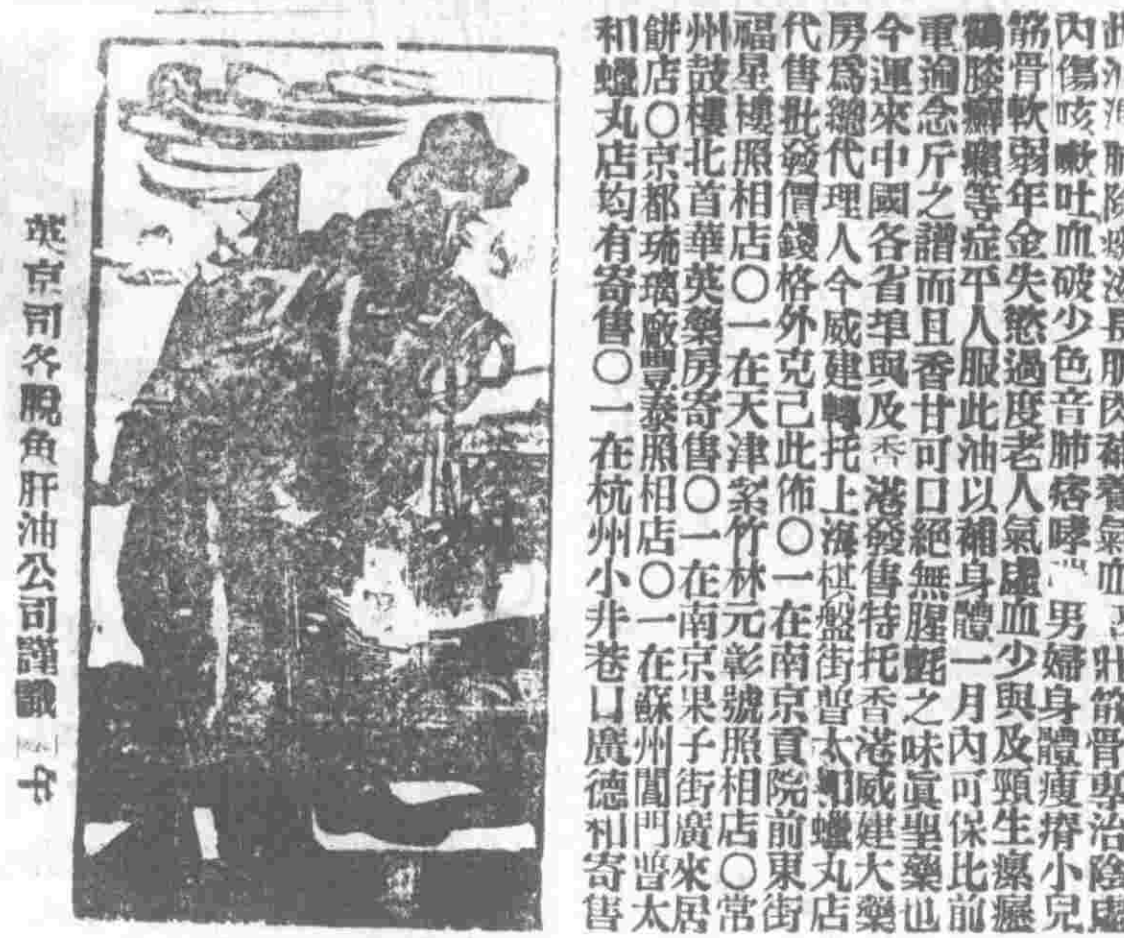 肺 滋長肌肉補養氣血 壯筋骨專治陰虛
內傷咳嗽吐血破少色音肺痞哮 男婦身體瘦瘠小兒
筋骨軟弱年金失慾過度老人氣虛血少與及頸生瘰癧
鶴膝癬癩等症平人服此油以補身體一月內可保比前
重逾念斤之譜而且香甘可口絕無腥羶之味眞聖藥也
今運來中國各省埠與及香港發售特托香港威建大藥
房爲總代理人今威建轉托上海棋盤街普太和蠟丸店
代售批發價錢格外克己此佈〇一在南京貢院前東街
福星樓照相店〇一在天津紫竹林元彰號照相店〇常
州鼓樓北首華英藥房寄售〇一在南京果子街廣來居
餅店〇京都琉璃廠豐泰照相店〇一在蘇州閶門普太
和蠟丸店均有寄售〇一在杭州小井巷口廣德和寄售
英京司各脫魚肝油公司謹識